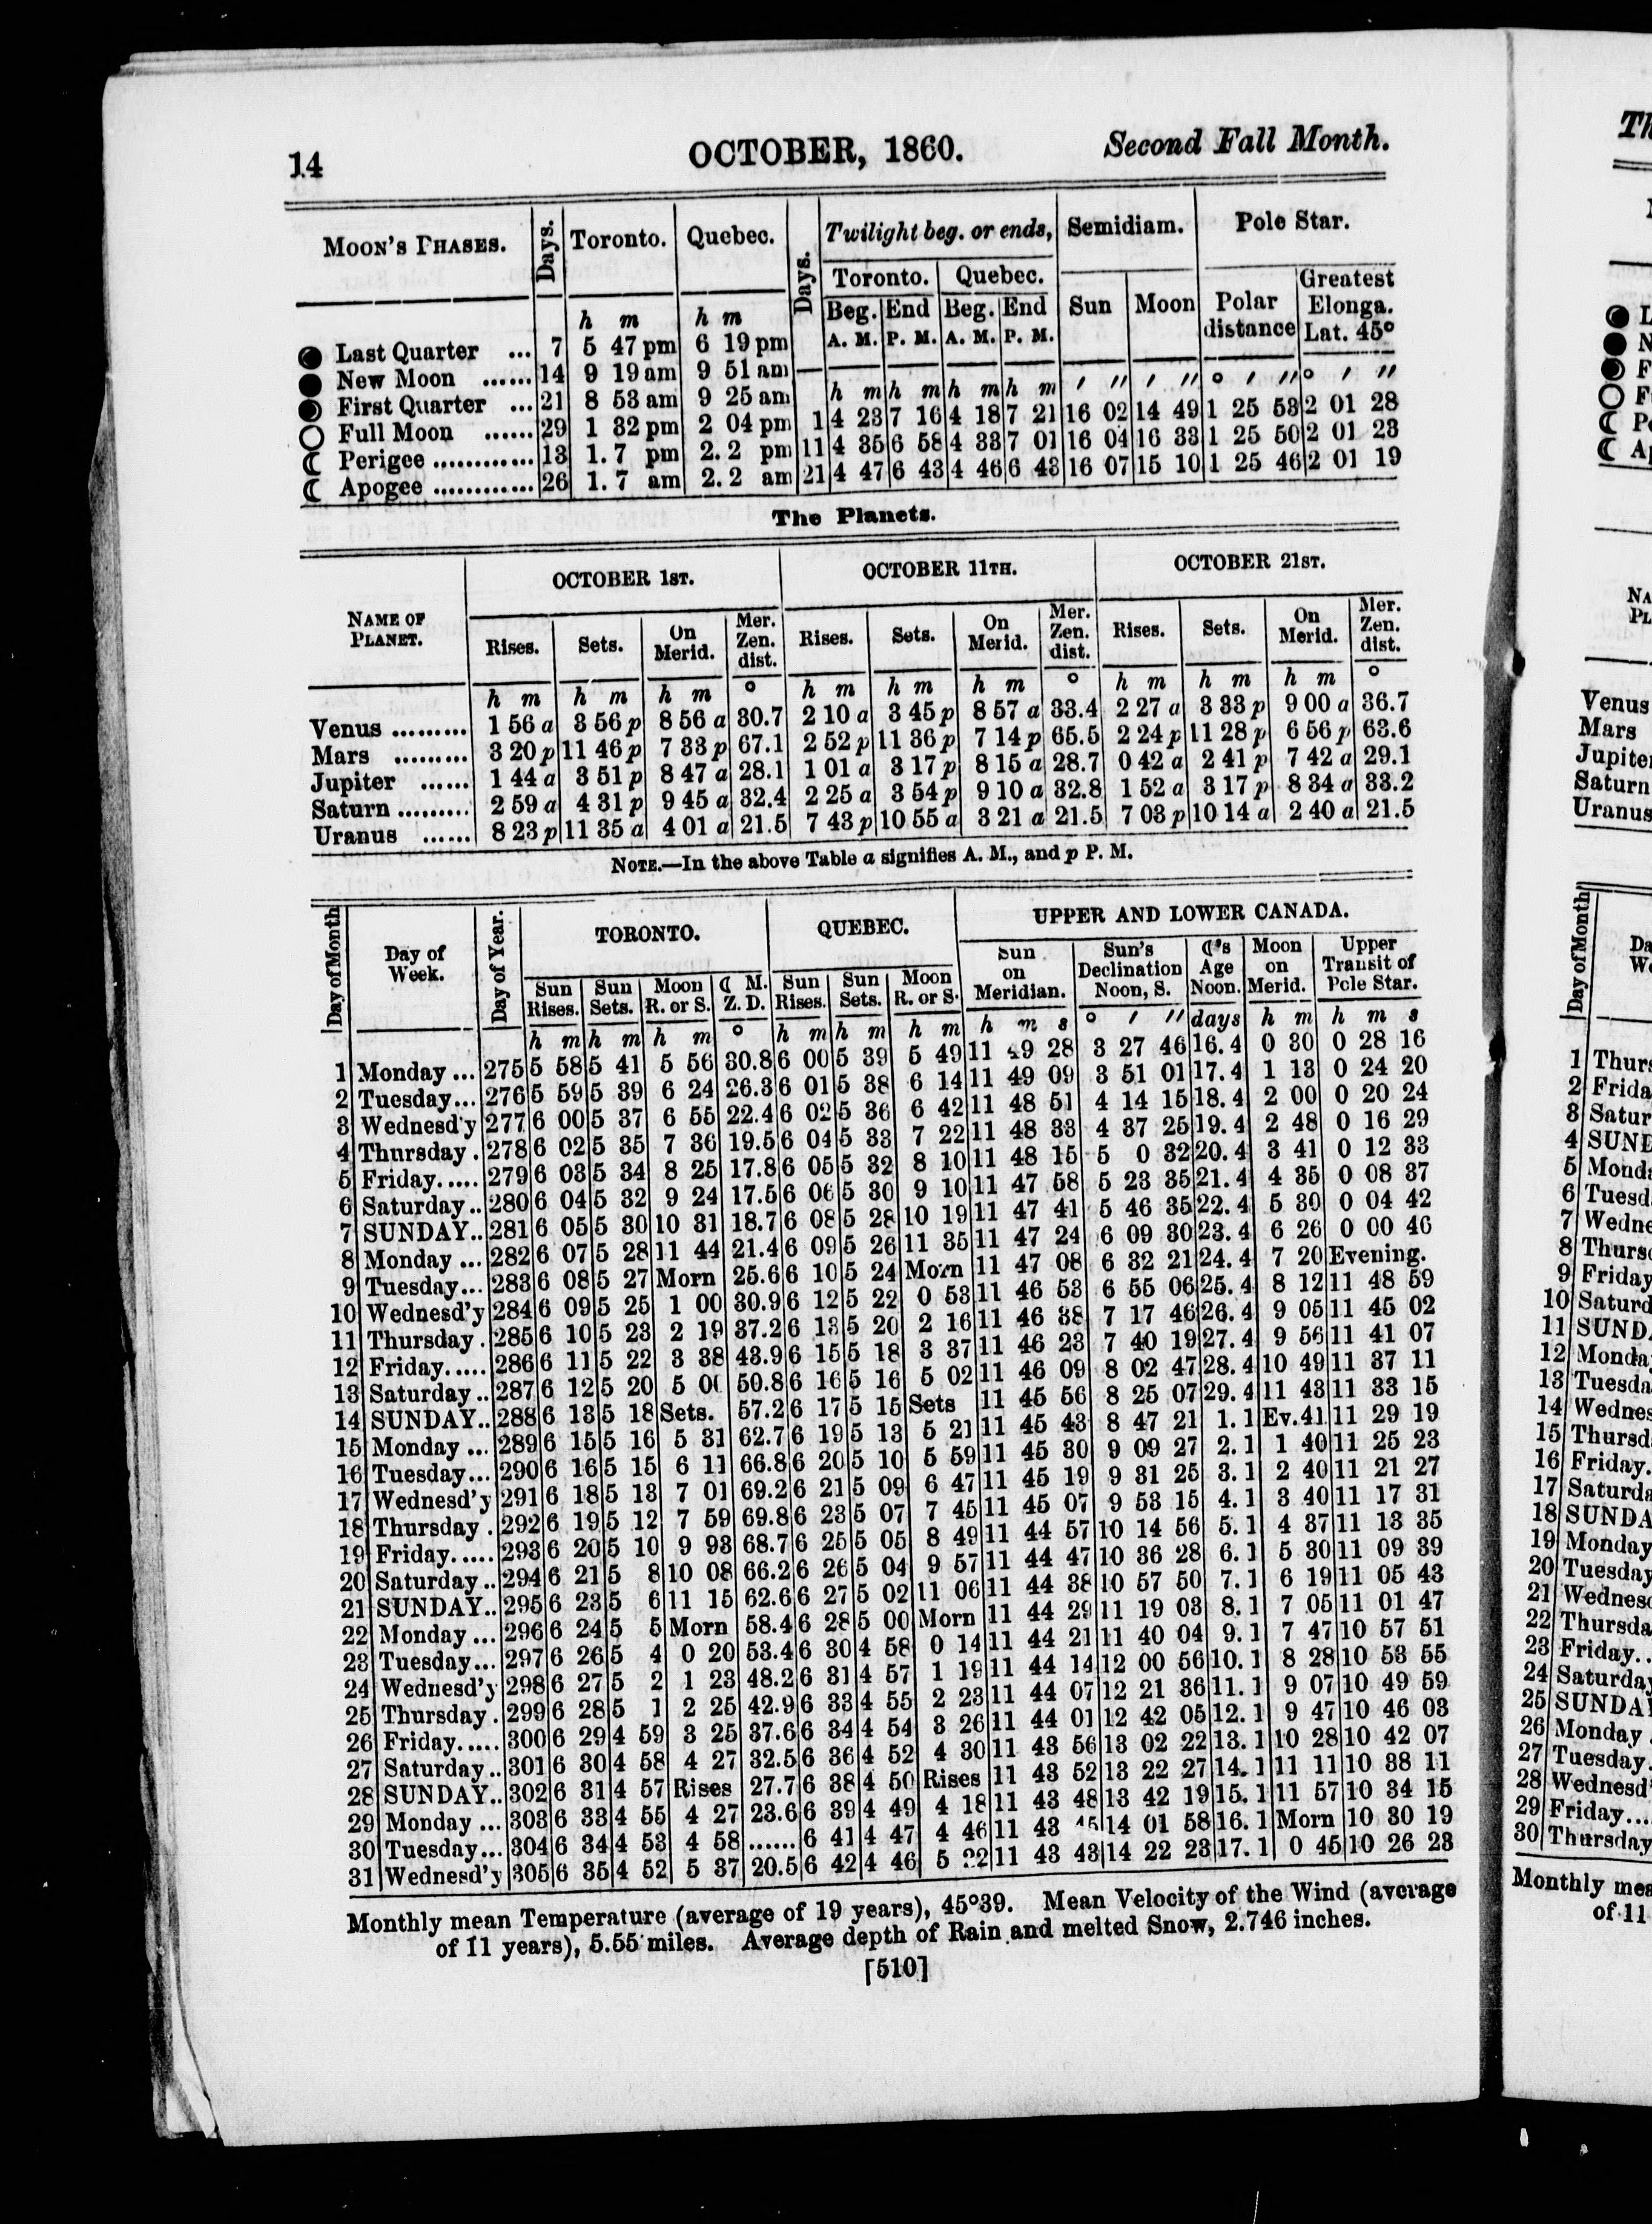 14 OCTOBER, 1860. Second Fall Month.
MOON'S PHASES. Days. Toronto. Quebec. Days. Twilight beg. or ends, Semidiam. Pole Star.
Toronto. Quebec. Sun Moon Polar distance Greatest Elonga. Lat. 45°
Beg. End Beg. End
A. M. P. M. A. M. P. M.
h m h m
Last Quarter ... 7 5 47 pm 6 19 pm
New Moon ...... 14 9 19 am 9 51 am
h m h m h m h m ′ ″ ′ ″ ° ′ ″ ° ′ ″
First Quarter ... 21 8 53 am 9 25 am
Full Moon ...... 29 1 32 pm 2 04 pm 1 4 23 7 16 4 18 7 21 16 02 14 49 1 25 53 2 01 28
Perigee ............ 13 1.7 pm 2.2 pm 11 4 35 6 58 4 33 7 01 16 04 16 33 1 25 50 2 01 23
Apogee ............ 26 1.7 am 2.2 am 21 4 47 6 43 4 46 6 43 16 07 15 10 1 25 46 2 01 19
The Planets.
NAME OF PLANET. OCTOBER 1ST. OCTOBER 11TH. OCTOBER 21ST.
Rises. Sets. On Merid. Mer. Zen. dist. Rises. Sets. On Merid. Mer. Zen. dist. Rises. Sets. On Merid. Mer. Zen. dist.
h m h m h m ° h m h m h m ° h m h m h m °
Venus ......... 1 56 a 3 56 p 8 56 a 30.7 2 10 a 3 45 p 8 57 a 33.4 2 27 a 3 33 p 9 00 a 36.7
Mars ......... 3 20 p 11 46 p 7 33 p 67.1 2 52 p 11 36 p 7 14 p 65.5 2 24 p 11 28 p 6 56 p 63.6
Jupiter ...... 1 44 a 3 51 p 8 47 a 28.1 1 01 a 3 17 p 8 15 a 28.7 0 42 a 2 41 p 7 42 a 29.1
Saturn ......... 2 59 a 4 31 p 9 45 a 32.4 2 25 a 3 54 p 9 10 a 32.8 1 52 a 3 17 p 8 34 a 33.2
Uranus ...... 8 23 p 11 35 a 4 01 a 21.5 7 43 p 10 55 a 3 21 a 21.5 7 03 p 10 14 a 2 40 a 21.5
NOTE.—In the above Table a signifies A. M., and p P. M.
Day of Month Day of Week. Day of Year. TORONTO. QUEBEC. UPPER AND LOWER CANADA.
Sun Rises. Sun Sets. Moon R. or S. ☾ M. Z. D. Sun Rises. Sun Sets. Moon R. or S. Sun on Meridian. Sun's Declination Noon, S. ☾'s Age Noon. Moon on Merid. Upper Transit of Pole Star.
h m h m h m ° h m h m h m h m s ° ′ ″ days h m h m s
1 Monday ... 275 5 58 5 41 5 56 30.8 6 00 5 39 5 49 11 49 28 3 27 46 16.4 0 30 0 28 16
2 Tuesday... 276 5 59 5 39 6 24 26.3 6 01 5 38 6 14 11 49 09 3 51 01 17.4 1 13 0 24 20
3 Wednesd'y 277 6 00 5 37 6 55 22.4 6 02 5 36 6 42 11 48 51 4 14 15 18.4 2 00 0 20 24
4 Thursday . 278 6 02 5 35 7 36 19.5 6 04 5 33 7 22 11 48 33 4 37 25 19.4 2 48 0 16 29
5 Friday..... 279 6 03 5 34 8 25 17.8 6 05 5 32 8 10 11 48 15 5 0 32 20.4 3 41 0 12 33
6 Saturday.. 280 6 04 5 32 9 24 17.5 6 06 5 30 9 10 11 47 58 5 23 35 21.4 4 35 0 08 37
7 SUNDAY.. 281 6 05 5 30 10 31 18.7 6 08 5 28 10 19 11 47 41 5 46 35 22.4 5 30 0 04 42
8 Monday ... 282 6 07 5 28 11 44 21.4 6 09 5 26 11 35 11 47 24 6 09 30 23.4 6 26 0 00 46
9 Tuesday... 283 6 08 5 27 Morn 25.6 6 10 5 24 Morn 11 47 08 6 32 21 24.4 7 20 Evening.
10 Wednesd'y 284 6 09 5 25 1 00 30.9 6 12 5 22 0 53 11 46 53 6 55 06 25.4 8 12 11 48 59
11 Thursday . 285 6 10 5 23 2 19 37.2 6 13 5 20 2 16 11 46 38 7 17 46 26.4 9 05 11 45 02
12 Friday..... 286 6 11 5 22 3 38 43.9 6 15 5 18 3 37 11 46 23 7 40 19 27.4 9 56 11 41 07
13 Saturday.. 287 6 12 5 20 5 0 50.8 6 16 5 16 5 02 11 46 09 8 02 47 28.4 10 49 11 37 11
14 SUNDAY.. 288 6 13 5 18 Sets. 57.2 6 17 5 15 Sets 11 45 56 8 25 07 29.4 11 43 11 33 15
15 Monday ... 289 6 15 5 16 5 31 62.7 6 19 5 13 5 21 11 45 43 8 47 21 1.1 Ev.41 11 29 19
16 Tuesday... 290 6 16 5 15 6 11 66.8 6 20 5 10 5 59 11 45 30 9 09 27 2.1 1 40 11 25 23
17 Wednesd'y 291 6 18 5 13 7 01 69.2 6 21 5 09 6 47 11 45 19 9 31 25 3.1 2 40 11 21 27
18 Thursday . 292 6 19 5 12 7 59 69.8 6 23 5 07 7 45 11 45 07 9 53 15 4.1 3 40 11 17 31
19 Friday..... 293 6 20 5 10 9 93 68.7 6 25 5 05 8 49 11 44 57 10 14 56 5.1 4 37 11 13 35
20 Saturday.. 294 6 21 5 8 10 08 66.2 6 26 5 04 9 57 11 44 47 10 36 28 6.1 5 30 11 09 39
21 SUNDAY.. 295 6 23 5 6 11 15 62.6 6 27 5 02 11 06 11 44 38 10 57 50 7.1 6 19 11 05 43
22 Monday ... 296 6 24 5 5 Morn 58.4 6 28 5 00 Morn 11 44 29 11 19 03 8.1 7 05 11 01 47
23 Tuesday... 297 6 26 5 4 0 20 53.4 6 30 4 58 0 14 11 44 21 11 40 04 9.1 7 47 10 57 51
24 Wednesd'y 298 6 27 5 2 1 23 48.2 6 31 4 57 1 19 11 44 14 12 00 56 10.1 8 28 10 53 55
25 Thursday . 299 6 28 5 1 2 25 42.9 6 33 4 55 2 23 11 44 07 12 21 36 11.1 9 07 10 49 59
26 Friday..... 300 6 29 4 59 3 25 37.6 6 34 4 54 3 26 11 44 01 12 42 05 12.1 9 47 10 46 03
27 Saturday.. 301 6 30 4 58 4 27 32.5 6 36 4 52 4 30 11 43 56 13 02 22 13.1 10 28 10 42 07
28 SUNDAY.. 302 6 31 4 57 Rises 27.7 6 38 4 50 Rises 11 43 52 13 22 27 14.1 11 11 10 38 11
29 Monday ... 303 6 33 4 55 4 27 23.6 6 39 4 49 4 18 11 43 48 13 42 19 15.1 11 57 10 34 15
30 Tuesday... 304 6 34 4 53 4 58 ...... 6 41 4 47 4 46 11 43 45 14 01 58 16.1 Morn 10 30 19
31 Wednesd'y 305 6 35 4 52 5 37 20.5 6 42 4 46 5 22 11 43 43 14 22 23 17.1 0 45 10 26 23
Monthly mean Temperature (average of 19 years), 45°39. Mean Velocity of the Wind (average
of 11 years), 5.55 miles. Average depth of Rain and melted Snow, 2.746 inches.
[510]
Day of Month
1 Thurs
2 Frida
3 Satur
4 SUND
5 Monda
6 Tuesd
7 Wedne
8 Thursd
9 Friday
10 Saturd
11 SUND
12 Monda
13 Tuesda
14 Wednes
15 Thursd
16 Friday.
17 Saturda
18 SUNDA
19 Monday
20 Tuesday
21 Wednesd
22 Thursda
23 Friday..
24 Saturday
25 SUNDA
26 Monday
27 Tuesday.
28 Wednesd'
29 Friday...
30 Thursday
Venus
Mars
Jupiter
Saturn
Uranus
Monthly mea
of 11